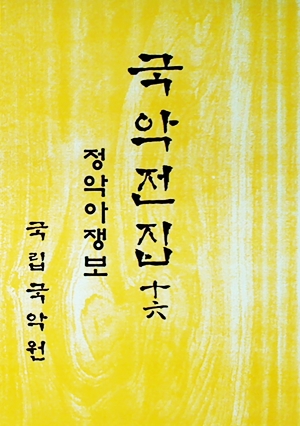 국악전집 十六
정악아쟁보
국립국악원